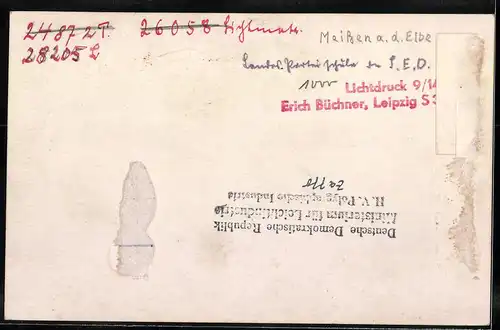 24872 T. 26058 Lichtmatr.
28205 L
Meißen a. d. Elbe
Landes-Parteischule der S.E.D.
1000
Lichtdruck 9/14
Erich Büchner, Leipzig S 3
Deutsche Demokratische Republik
Ministerium für Leichtindustrie
H. V. Polygraphische Industrie